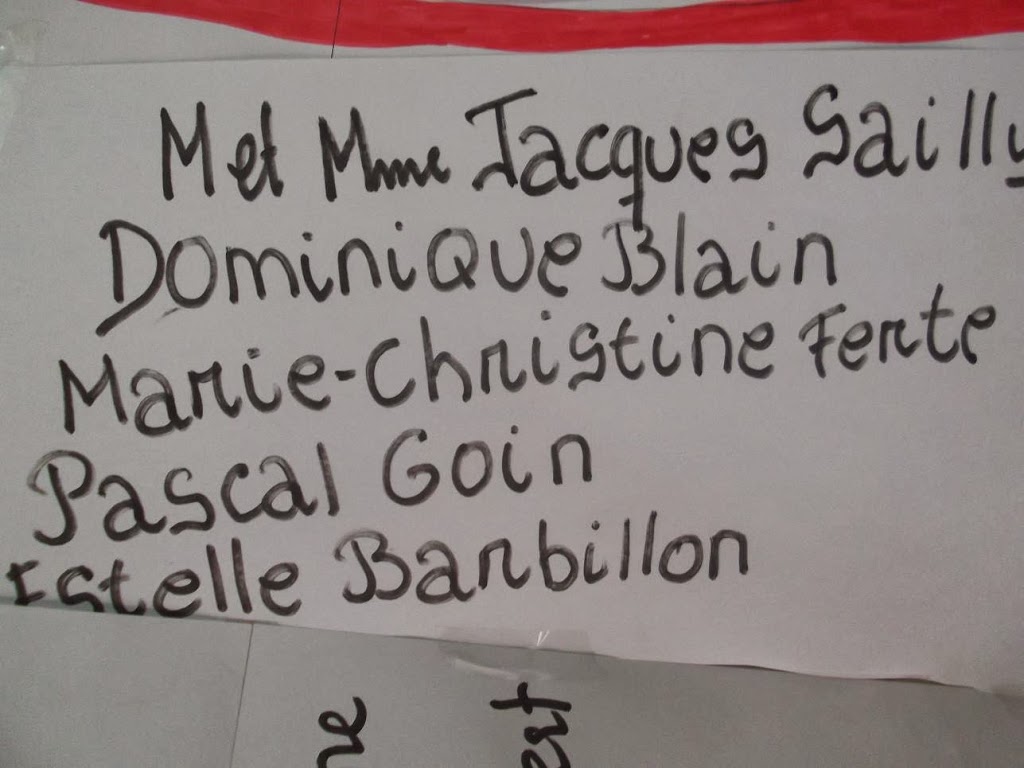 M et Mme Jacques Sailly
Dominique Blain
Marie-Christine Ferte
Pascal Goin
Estelle Barbillon